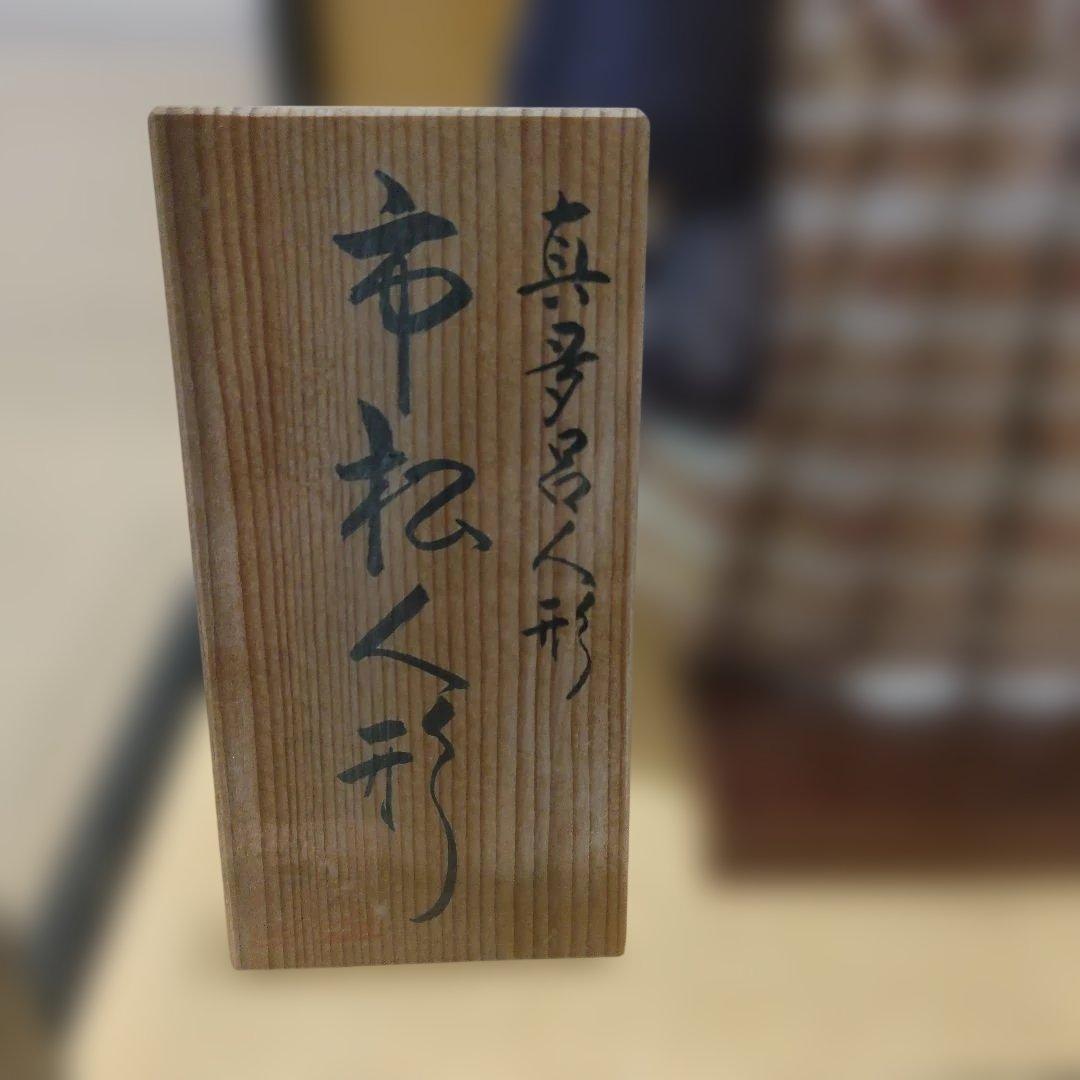 真多呂人形
市松人形